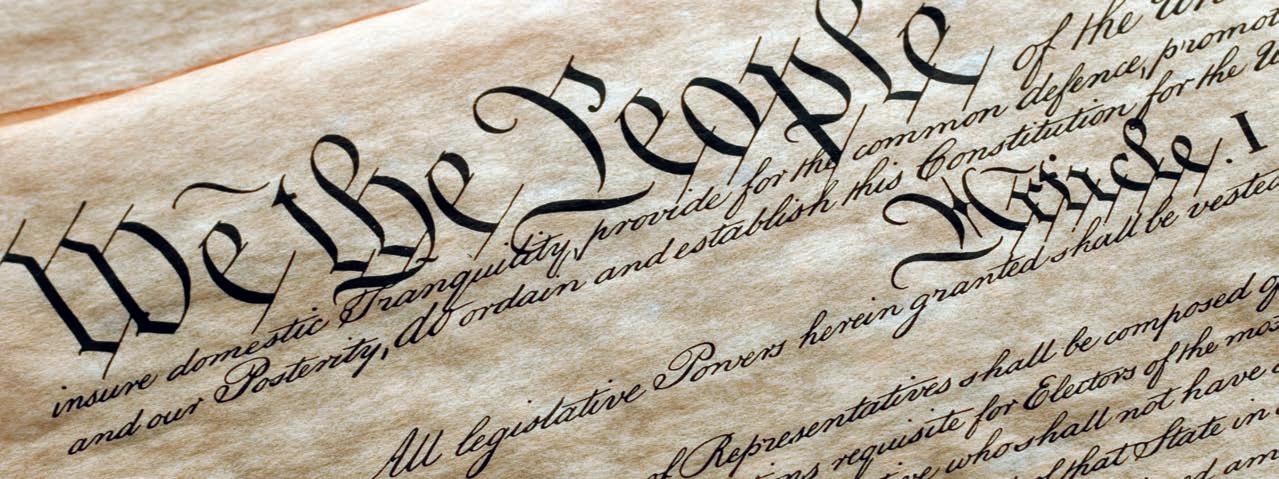 We the People of the Un
insure domestic Tranquility, provide for the common defence, promot
and our Posterity, do ordain and establish this Constitution for the U
Article. I
All legislative Powers herein granted shall be vested
of Representatives shall be composed of
requisite for Electors of the mos
who shall not have
of that State in